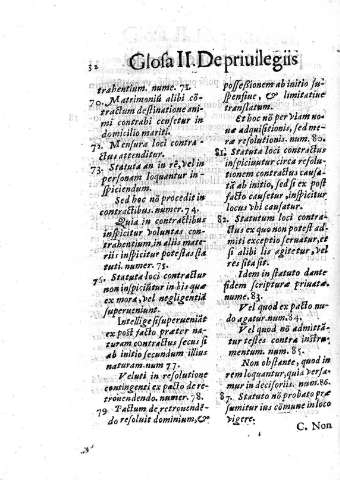 32 Glosa II. De priuilegiis
trahentium. nume. 71.
70. Matrimoniũ alibi cõ-
tractum destinatione ani-
mi contrahi censetur in
domicilio mariti.
71. Mensura loci contra-
ctus attenditur.
73. Statuta an in rē, vel in
personam loquantur in-
spiciendum.
Sed hoc nõ procedit in
contractibus. numer. 74.
Quia in contractibus
inspicitur voluntas con-
trahentium, in aliis mate-
riis inspicitur potestas sta
tuti. numer. 75.
75. Statuta loci contractus
non inspiciũtur in his quæ
ex mora, vel negligentia
superueniunt.
Intellige si superueniãt
ex post facto præter na-
turam contractus secus si
ab initio secundum illius
naturam. num 77.
Veluti in resolutione
contingenti ex pacto de re-
trouendendo. numer. 78.
79. Pactum de retrouende-
do resoluit dominium, &
possessionem ab initio su-
spensiue, & limitatiue
translatum.
Et hoc nõ per viam no-
uæ adquisitionis, sed me-
ra resolutionis. num. 80.
81. Statuta loci contractus
inspiciuntur circa resolu-
tionem contractus causa-
tã ab initio, sed si ex post
facto causetur, inspicitur
locus vbi causatur.
82. Statutum loci contra-
ctus ex quo non potest ad-
mitti exceptio seruatur, et
si alibi lis agitetur, vel
res sita sit.
Idem in statuto dante
fidem scripturæ priuatæ.
nume. 83.
Vel quod ex pacto nu-
do agatur. num. 84.
Vel quod nõ admittã-
tur testes contra instru-
mentum. num. 85.
Non obstante, quod in
rem loquantur, quia versa-
mur in decisoriis. num. 86.
87. Statuto nõ probato præ
sumitur ius cõmune in loco
vigere.
C. Non